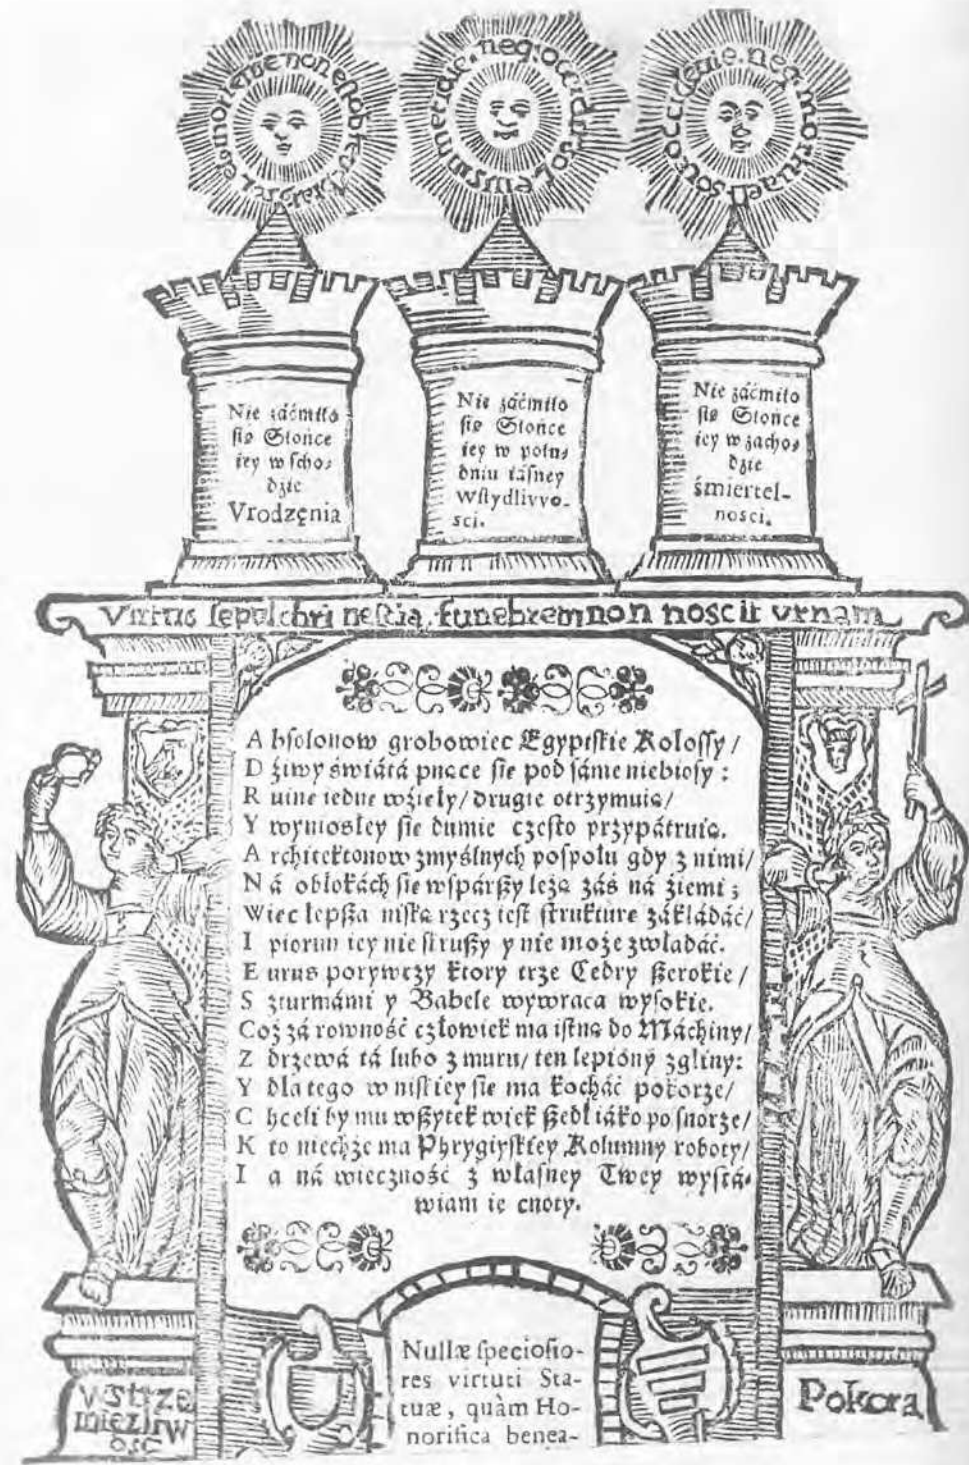 neq; occidit sol eius in meridie.
Nie záćmiło
się Słońce
iey w scho⸗
dzie
Vrodzęnia
Nie záćmiło
się Słońce
iey w połu⸗
dniu iásney
Wstydliwo-
sci.
Nie záćmiło
się Słońce
iey w zacho⸗
dzie
śmiertel-
nosci.
Virtus sepulchri nescia, funebrem non noscit vrnam
A bsolonow grobowiec Egyptskie Kolossy/
D źiwy świátá pnące się pod sáme niebiosy:
R uinę iedne wźięły/ drugie otrzymuią/
Y wyniosłey się dumie często przypátruią.
A rchitektonow zmyślnych pospołu gdy z nimi/
N á obłokách się wspárszy leżą záś ná źiemi;
W iec lepsza niską rzecz iest strukturę zákłádáć/
I piorun iey nie struszy y nie może zwładáć.
E urus porywczy ktory trze Cedry szerokie/
S zturmámi y Babele wywraca wysokie.
C oż zá rowność człowiek ma istną do Máchiny/
Z drzewá tá lubo z muru/ ten lepióny z gliny:
Y dla tego w niskiey się ma kocháć pokorze/
C hceli by mu wszytek wiek szedł iáko po snorze/
K to niechże ma Phrygiyskiey Kolumny roboty/
I a ná wieczność z własney Twey wystá⸗
wiam ie cnoty.
Wstrze
mięzliw
osc
Pokora
Nullæ speciosio-
res virtuti Sta-
tuæ, quàm Ho-
norifica benea-